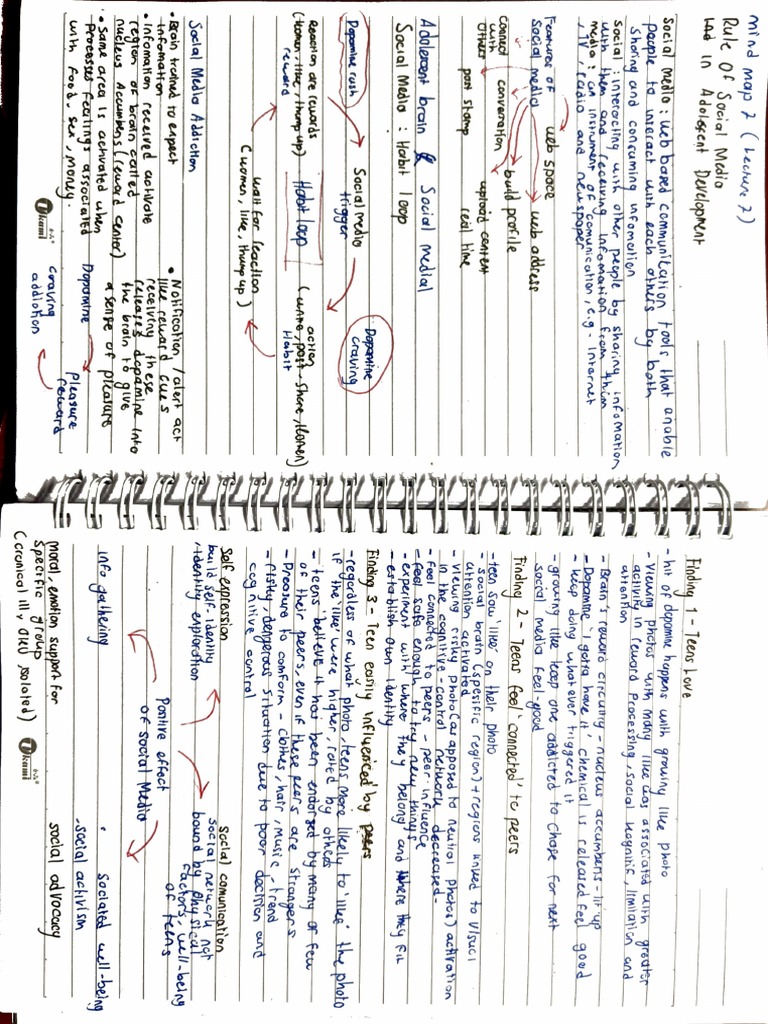 mind map 2 (Lecture 2)
Rule Of Social Media
Lad in Adolescent Development
Social media : web based communication tools that enable
people to interact with each others by both
sharing and consuming infomation
social : interacting with other people by sharing infomation
with them and receiving infomation from them
media : an instrument of comunication, e.g - internet
, TV, radio and newspaper
Features of
social media
web space
web address
build profile
connect
with
others
conversation
upload content
post stamp
real time
Adolescent brain & Social medial
Social Media : Habit loop
Dopamine rush
Social media
trigger
Dopamine
craving
Reaction are rewards
(women, like, thump up)
reward
Habit loop
action
(write, post - share, women)
Habit
wait for reaction
(women, like, thump up)
Social Media Addiction
• Brain trained to expect
infomation
• Infomation received activate
region of brain called
nucleus Accumbens (reward center)
• same area is activated when
Processes feelings associated
with food, sex, money.
• Notification / alert act
like reward cues
receiving these
releases dopamine into
the brain to give
a sense of pleasure
Dopamine
Pleasure
reward
craving
addiction
ukami
Finding 1 - Teens Love
- hit of dopamine happens with growing like photo
- Viewing photos with many like was associated with greater
activity in reward processing, social kognitif, limitation and
attention
- Brain's reward circuitry - nucleus accumbens - lit up
- Dopamine 'I gotta have it' chemical is released feel good
- keep doing whatever triggered it
- growing like keep one addicted to chase for next
social media feel-good
Finding 2 - Teens feel 'connected' to peers
- teen saw 'like' on their photo
- social brain (spesific region) + regions linked to visual
attention activated
- viewing risky photo (as opposed to neutral photos) activation
in the cognitive-control network decreased-
- Feel connected to peers - peer influence
- Feel safe enough to try new things
- experiment with where they belong and where they fit
- establish own identity
Finding 3 - Teen easily influenced by peers
- regardless of what photo, teens more likely to 'like' the photo
if the 'like' were higher, rated by others
- teens believe it has been endorsed by many or few
of their peers, even if these peers are strangers
- Pressure to comform - clothes, hair, music, trend
- risky, dangerous situation due to poor decision and
cognitive control
Self expression
build self identity
, identity exploration
Social comunication
social network not
bound by physical
factors, well-being
of teens
Positive effect
of social Media
info gathering
• sociated well-being
- social activism
social advocacy
moral, emotion support for
Specific group
(coronical ill, OKU, isolated)
ukami